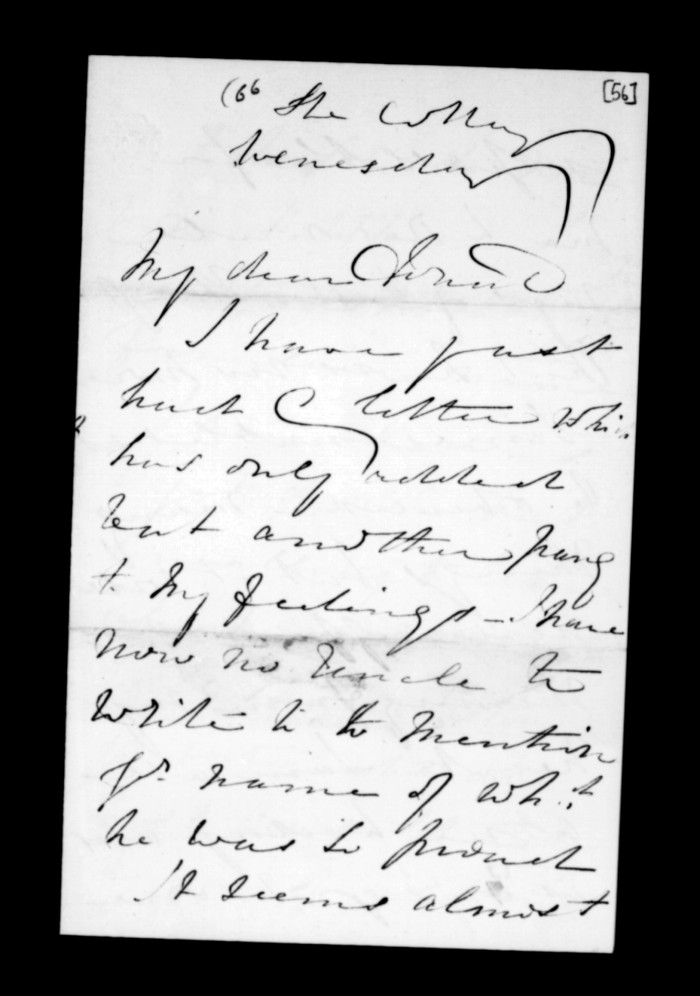 (66 The Cottage [56]
Wenesday
My dear
I have just
had a letter whi
has only added
but another pang
t My feelings - I have
now no Uncle to
write to to Mention
yr name of wh..h
he was so proud
It seems almost